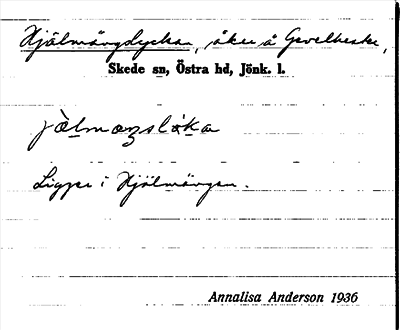 Hjälmängslyckan, åker å Gevelheste,
Skede sn, Östra hd, Jönk. l.
jälmaŋslöka
Ligger i Hjälmängen.
Annalisa Anderson 1936